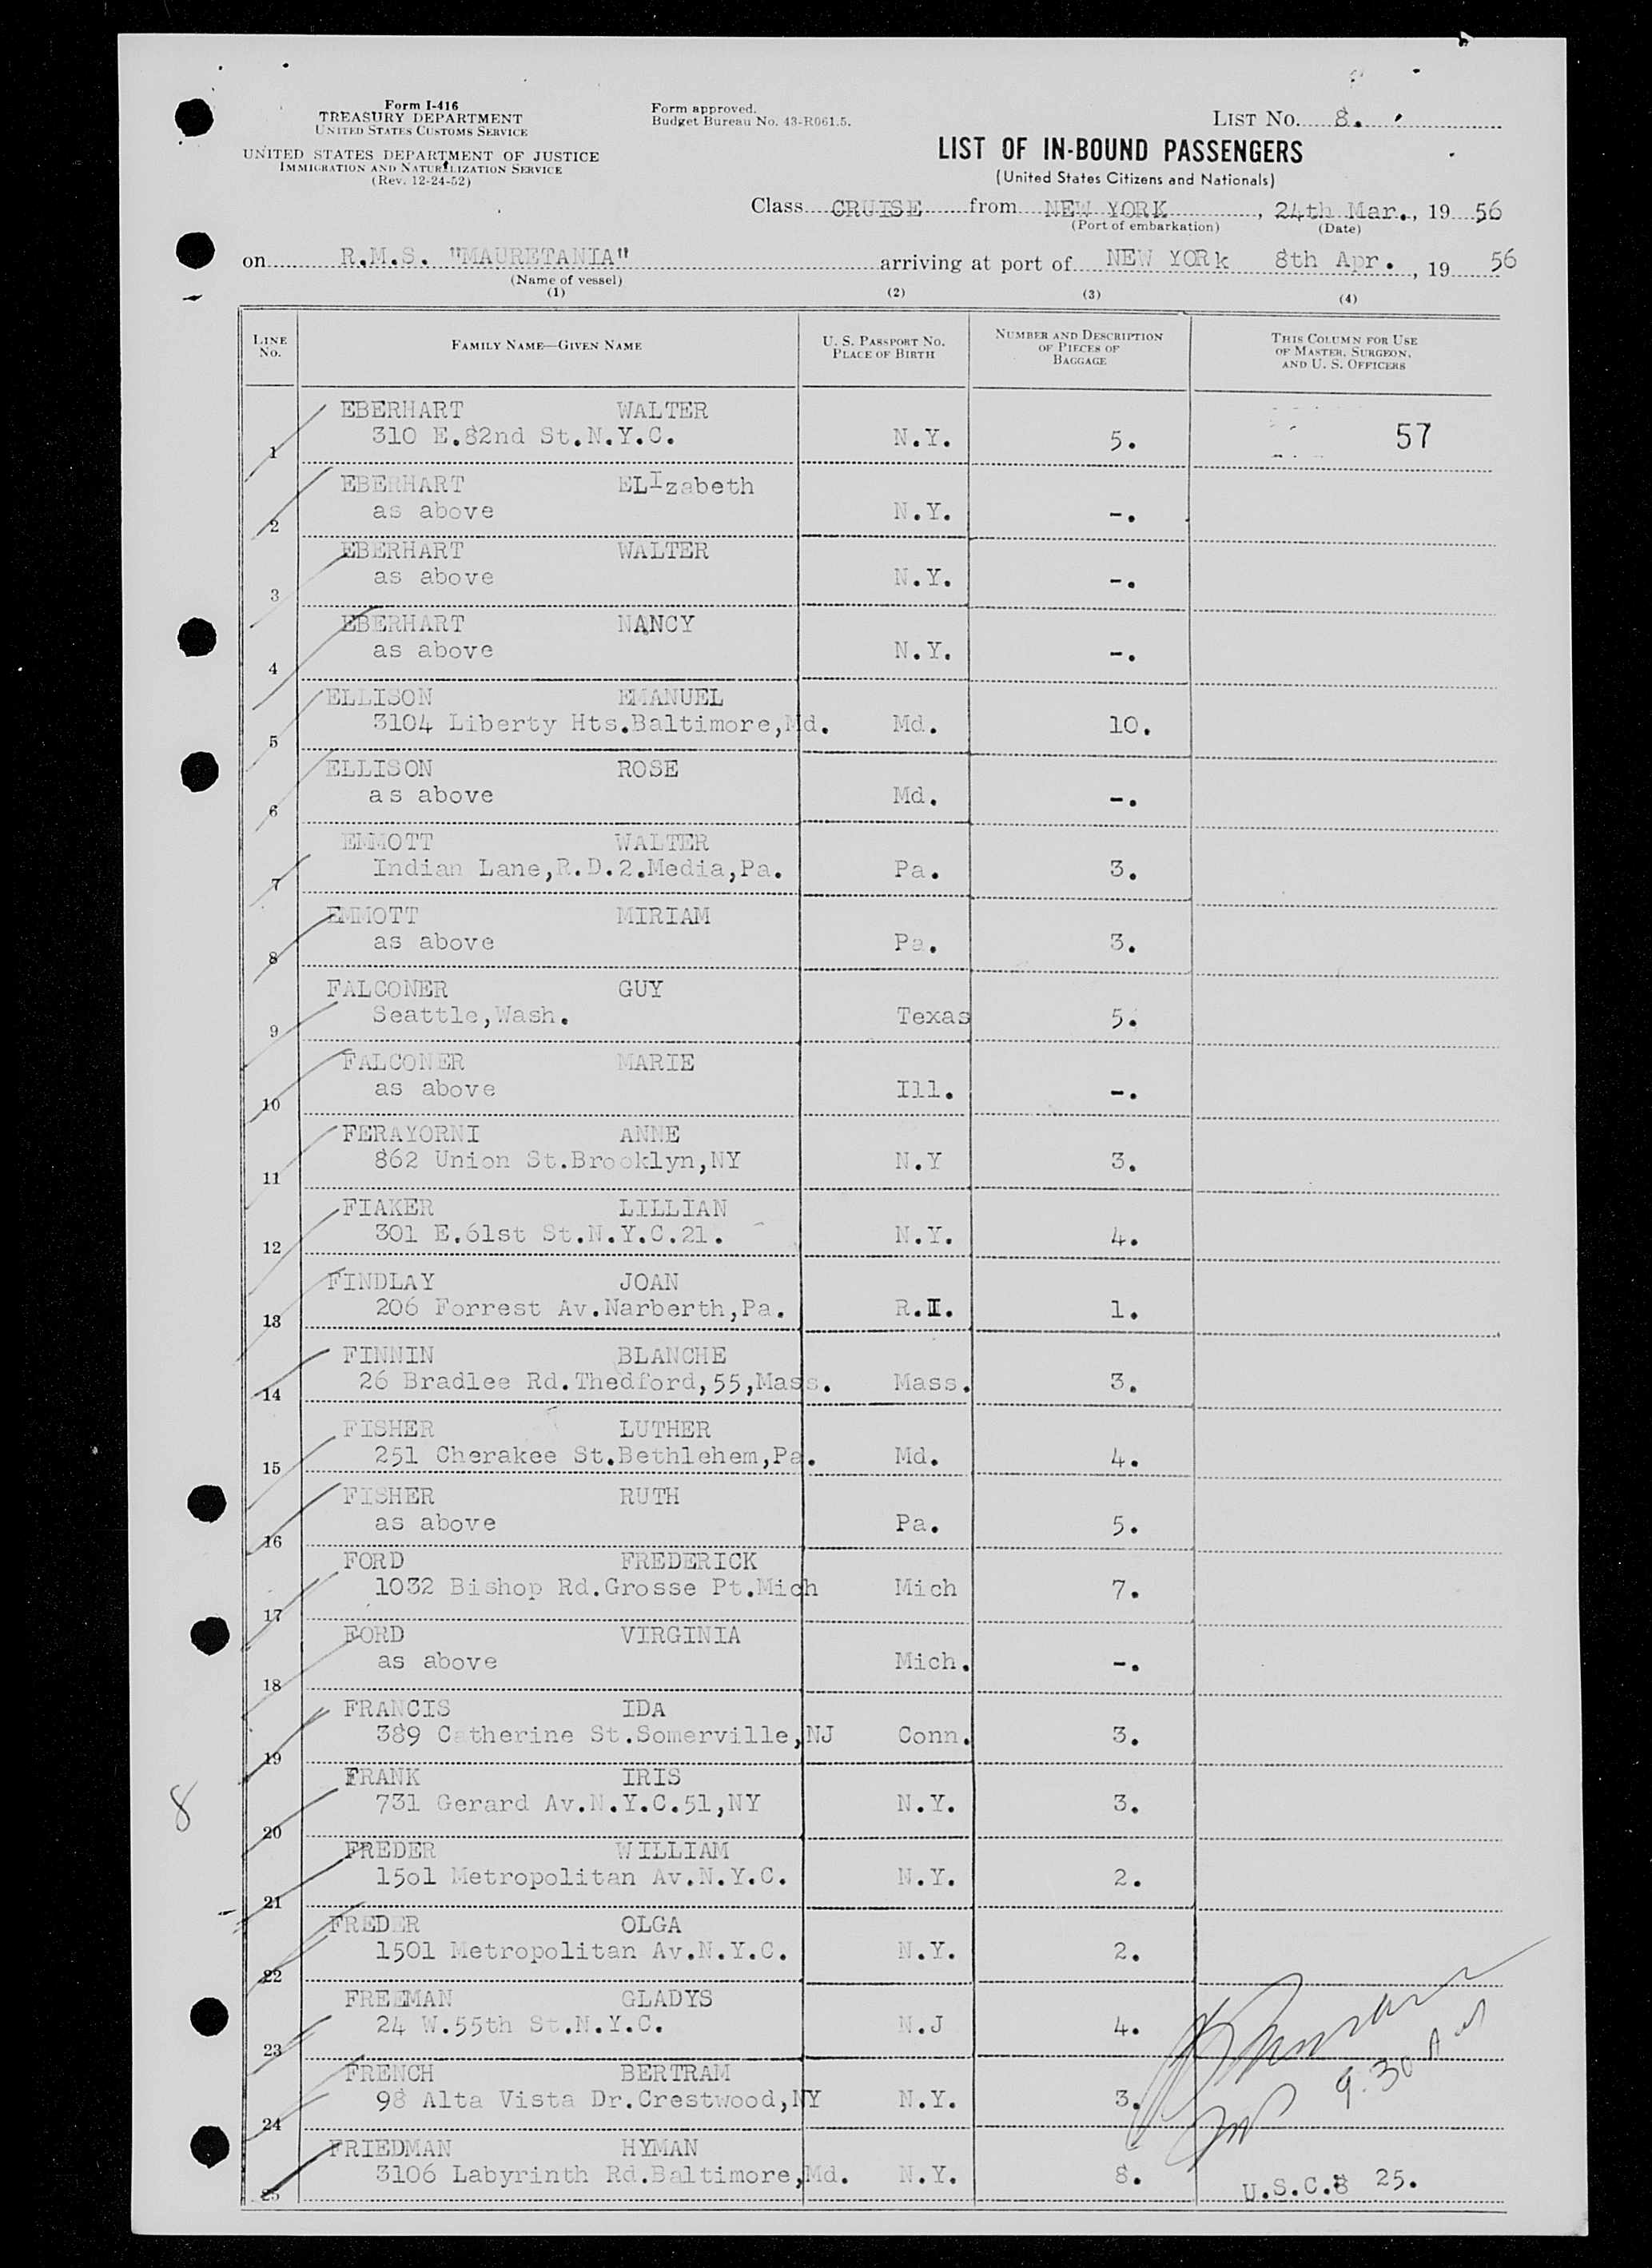 Form I-416
TREASURY DEPARTMENT
UNITED STATES CUSTOMS SERVICE
UNITED STATES DEPARTMENT OF JUSTICE
IMMIGRATION AND NATURALIZATION SERVICE
(Rev. 12-24-52)
Form approved.
Budget Bureau No. 43-R061.5.
LIST NO. 8.
LIST OF IN-BOUND PASSENGERS
(United States Citizens and Nationals)
Class CRUISE from NEW YORK, 24th Mar., 19 56
(Port of embarkation) (Date)
on R.M.S. "MAURETANIA" arriving at port of NEW YORk 8th Apr., 19 56
(Name of vessel)
(1) (2) (3) (4)
LINE NO. FAMILY NAME—GIVEN NAME U. S. PASSPORT NO. PLACE OF BIRTH NUMBER AND DESCRIPTION OF PIECES OF BAGGAGE THIS COLUMN FOR USE OF MASTER, SURGEON, AND U. S. OFFICERS
EBERHART WALTER
1 310 E.82nd St.N.Y.C. N.Y. 5. 57
EBERHART ELIzabeth
2 as above N.Y. -.
EBERHART WALTER
3 as above N.Y. -.
EBERHART NANCY
4 as above N.Y. -.
ELLISON EMANUEL
5 3104 Liberty Hts.Baltimore,Md. Md. 10.
ELLISON ROSE
6 as above Md. -.
EMMOTT WALTER
7 Indian Lane,R.D.2.Media,Pa. Pa. 3.
EMMOTT MIRIAM
8 as above Pa. 3.
FALCONER GUY
9 Seattle,Wash. Texas 5.
FALCONER MARIE
10 as above Ill. -.
FERAYORNI ANNE
11 862 Union St.Brooklyn,NY N.Y 3.
FIAKER LILLIAN
12 301 E.61st St.N.Y.C.21. N.Y. 4.
FINDLAY JOAN
13 206 Forrest Av.Narberth,Pa. R.I. 1.
FINNIN BLANCHE
14 26 Bradlee Rd.Thedford,55,Mass. Mass. 3.
FISHER LUTHER
15 251 Cherakee St.Bethlehem,Pa. Md. 4.
FISHER RUTH
16 as above Pa. 5.
FORD FREDERICK
17 1032 Bishop Rd.Grosse Pt.Mich Mich 7.
FORD VIRGINIA
18 as above Mich. -.
FRANCIS IDA
19 389 Catherine St.Somerville,NJ Conn. 3.
FRANK IRIS
8
20 731 Gerard Av.N.Y.C.51,NY N.Y. 3.
FREDER WILLIAM
21 15o1 Metropolitan Av.N.Y.C. N.Y. 2.
FREDER OLGA
22 1501 Metropolitan Av.N.Y.C. N.Y. 2.
FREEMAN GLADYS
23 24 W.55th St.N.Y.C. N.J 4.
FRENCH BERTRAM
24 98 Alta Vista Dr.Crestwood,NY N.Y. 3. 9.30 A M
FRIEDMAN HYMAN
25 3106 Labyrinth Rd.Baltimore,Md. N.Y. 8.
U.S.C.8 25.